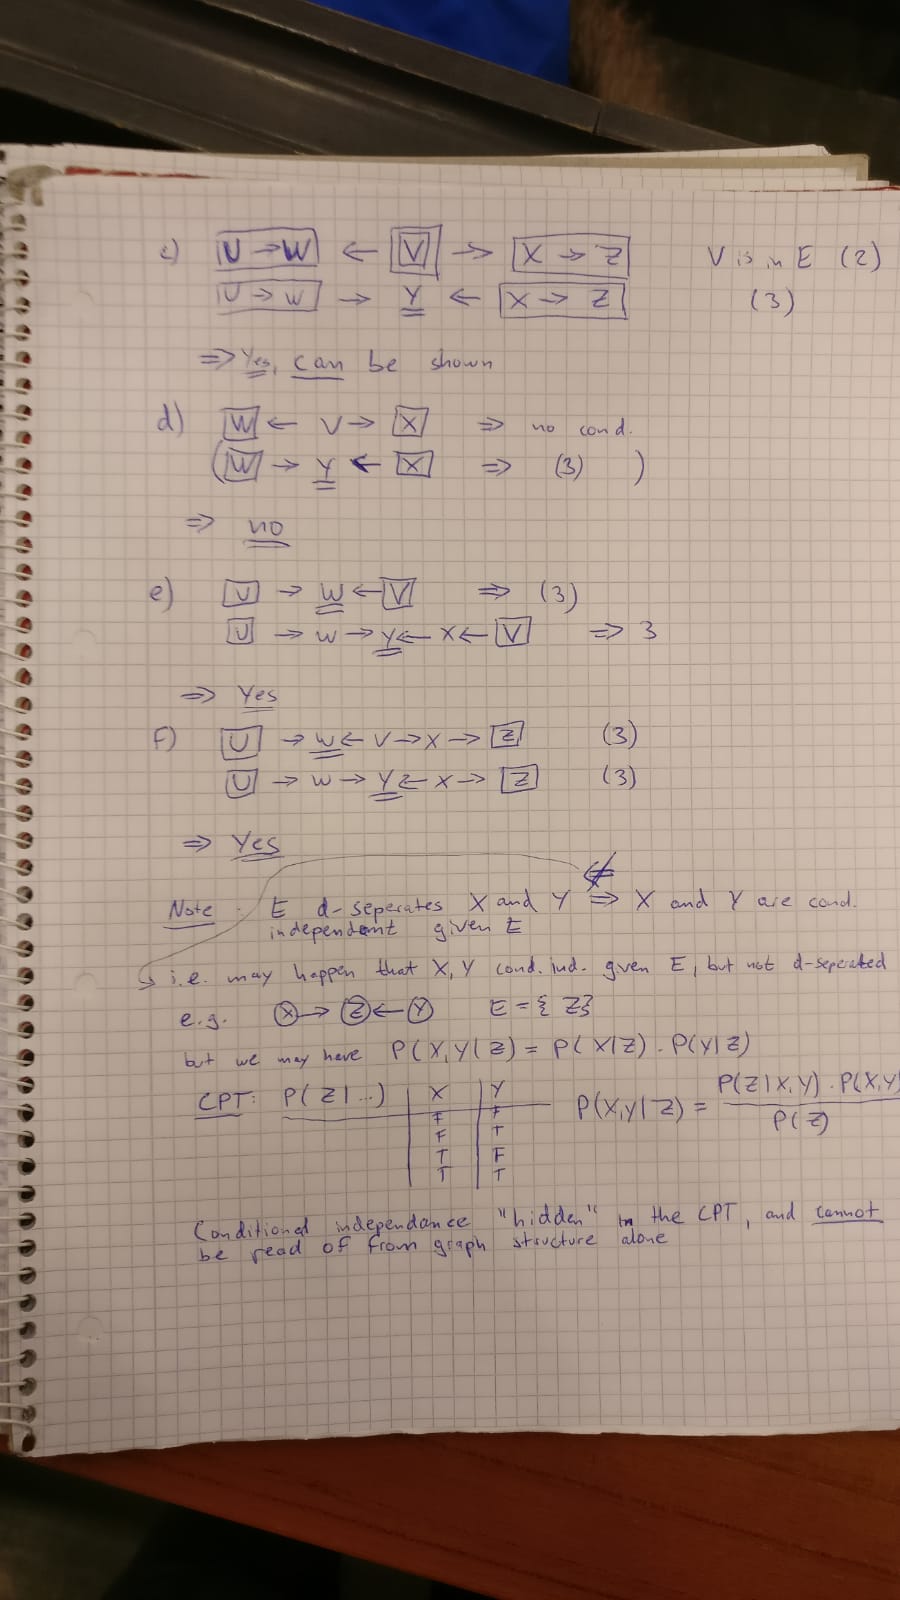 c) U → W ← V → X → Z V is in E (2)
U → W → Y ← X → Z (3)
⇒ Yes, can be shown
d) W ← V → X ⇒ no cond.
( W → Y ← X ⇒ (3) )
⇒ no
e) U → W ← V ⇒ (3)
U → W → Y ← X ← V ⇒ 3
⇒ Yes
f) U → W ← V → X → Z (3)
U → W → Y ← X → Z (3)
⇒ Yes
Note: E d-seperates X and Y ⇒ X and Y are cond.
independent given E
i.e. may happen that X, Y cond. ind. given E, but not d-seperated
e.g. X → Z ← Y E = { Z}
but we may have P(X,Y|Z) = P(X|Z) · P(Y|Z)
CPT: P(Z|...) X Y P(X,Y|Z) = P(Z|X,Y) · P(X,Y) / P(Z)
F F
F T
T F
T T
Conditional independance "hidden" in the CPT, and cannot
be read of from graph structure alone